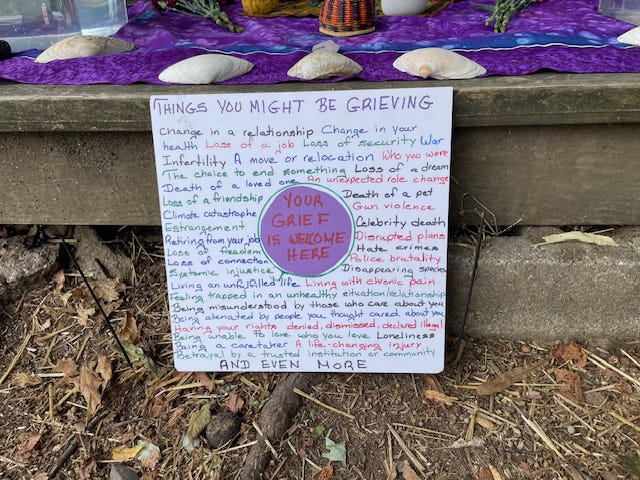 THINGS YOU MIGHT BE GRIEVING
Change in a relationship Change in your
health Loss of a job Loss of security War
Infertility A move or relocation Who you were
The choice to end something Loss of a dream
Death of a loved one An unexpected role change
Loss of a friendship Death of a pet
Climate catastrophe Gun violence
Estrangement Celebrity death
Retiring from your job Disrupted plans
Loss of freedom Hate crimes
Loss of connection Police brutality
Systemic injustice Disappearing species
YOUR
GRIEF
IS WELCOME
HERE
Living an unfulfilled life Living with chronic pain
Feeling trapped in an unhealthy situation/relationship
Being misunderstood by those who care about you
Being alienated by people you thought cared about you
Having your rights denied, dismissed, declared illegal
Being unable to love who you love Loneliness
Being a caretaker A life-changing injury
Betrayal by a trusted institution or community
AND EVEN MORE